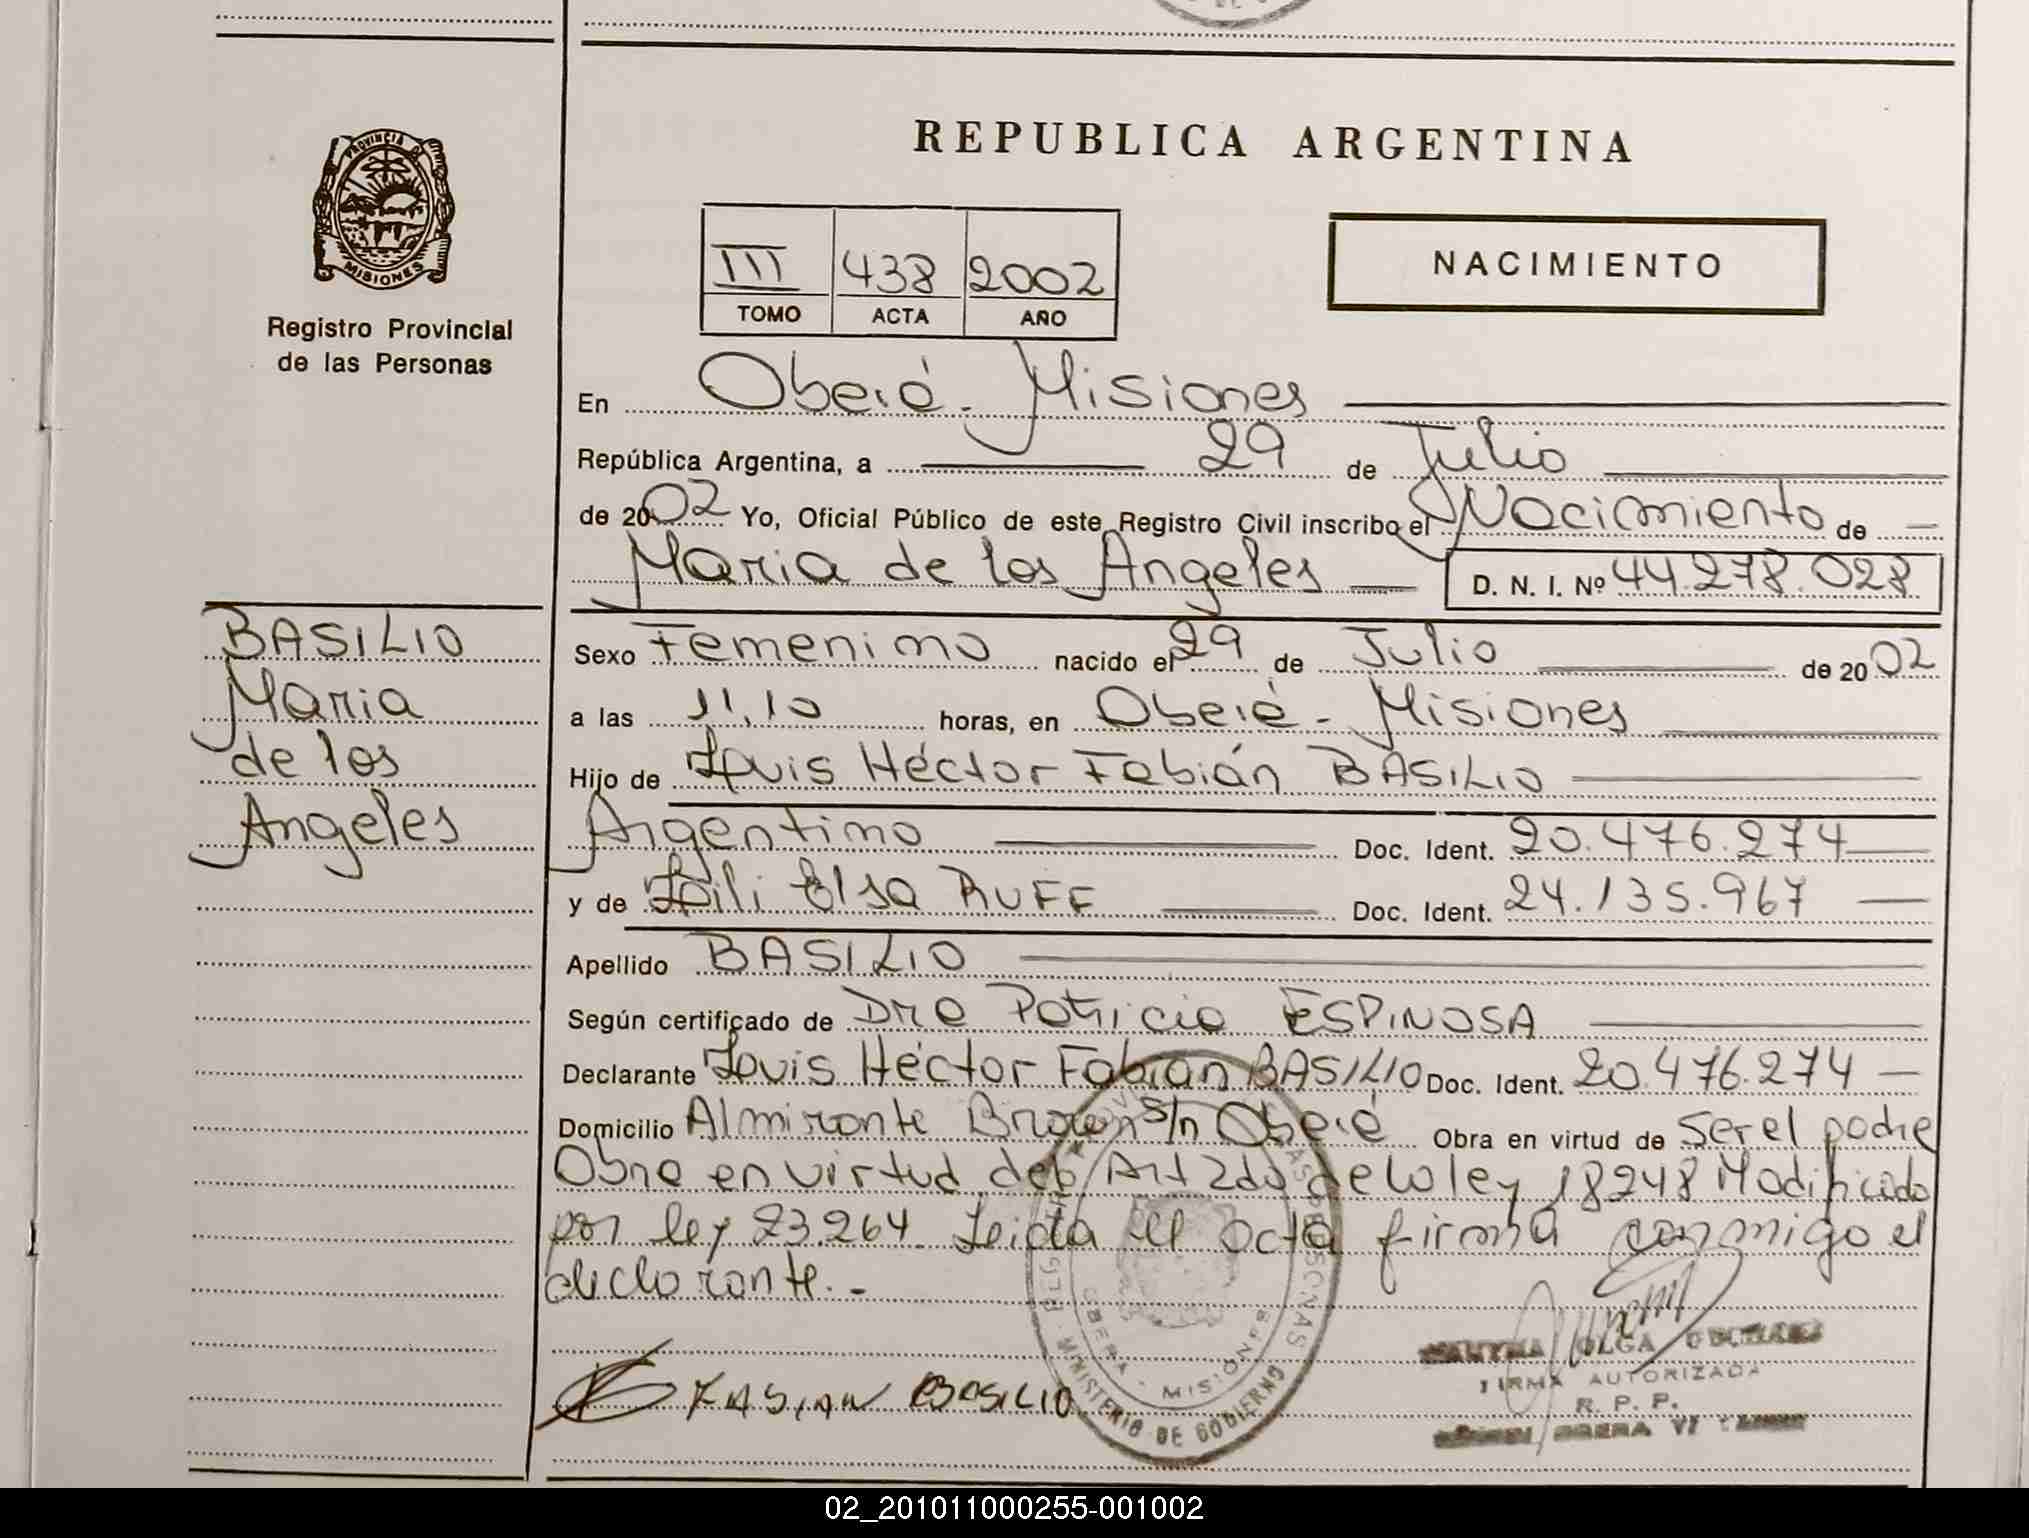 PROVINCIA DE
MISIONES
Registro Provincial
de las Personas
REPUBLICA ARGENTINA
III 438 2002
TOMO ACTA AÑO
NACIMIENTO
En Oberá - Misiones
República Argentina, a 29 de Julio
de 2002 Yo, Oficial Público de este Registro Civil inscribo el Nacimiento de
Maria de los Angeles D. N. I. Nº 44.278.028
BASILIO
Maria
de los
Angeles
Sexo Femenino nacido el 29 de Julio de 2002
a las 11,10 horas, en Oberá - Misiones
Hijo de Luis Héctor Fabián BASILIO
Argentino Doc. Ident. 20.476.274
y de Lili Elsa RUFF Doc. Ident. 24.135.967
Apellido BASILIO
Según certificado de Dra Patricia ESPINOSA
Declarante Luis Héctor Fabian BASILIO Doc. Ident. 20.476.274
Domicilio Almirante Brown s/n Oberá Obra en virtud de Ser el padre
Obra en virtud del Art 2do de la ley 18248 Modificado
por ley 23.264. Leida el acta firma conmigo el
declarante.-
FABIAN BASILIO
MINISTERIO DE GOBIERNO
OBERA - MISIONES
OLGA
FIRMA AUTORIZADA
R. P. P.
OBERA
02_201011000255-001002